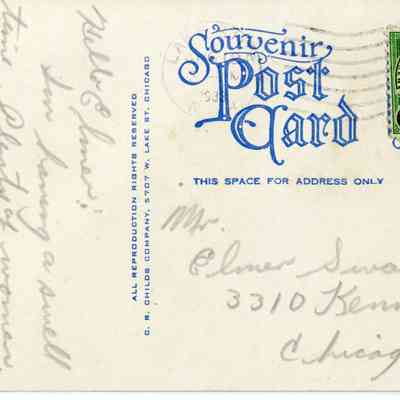 Hello Elmer:
Am having a swell
time. Plenty of women.
ALL REPRODUCTION RIGHTS RESERVED
C. R. CHILDS COMPANY, 5707 W. LAKE ST. CHICAGO
Souvenir
Post
Card
THIS SPACE FOR ADDRESS ONLY
Mr.
Elmer Swa
3310 Kenm
Chicag